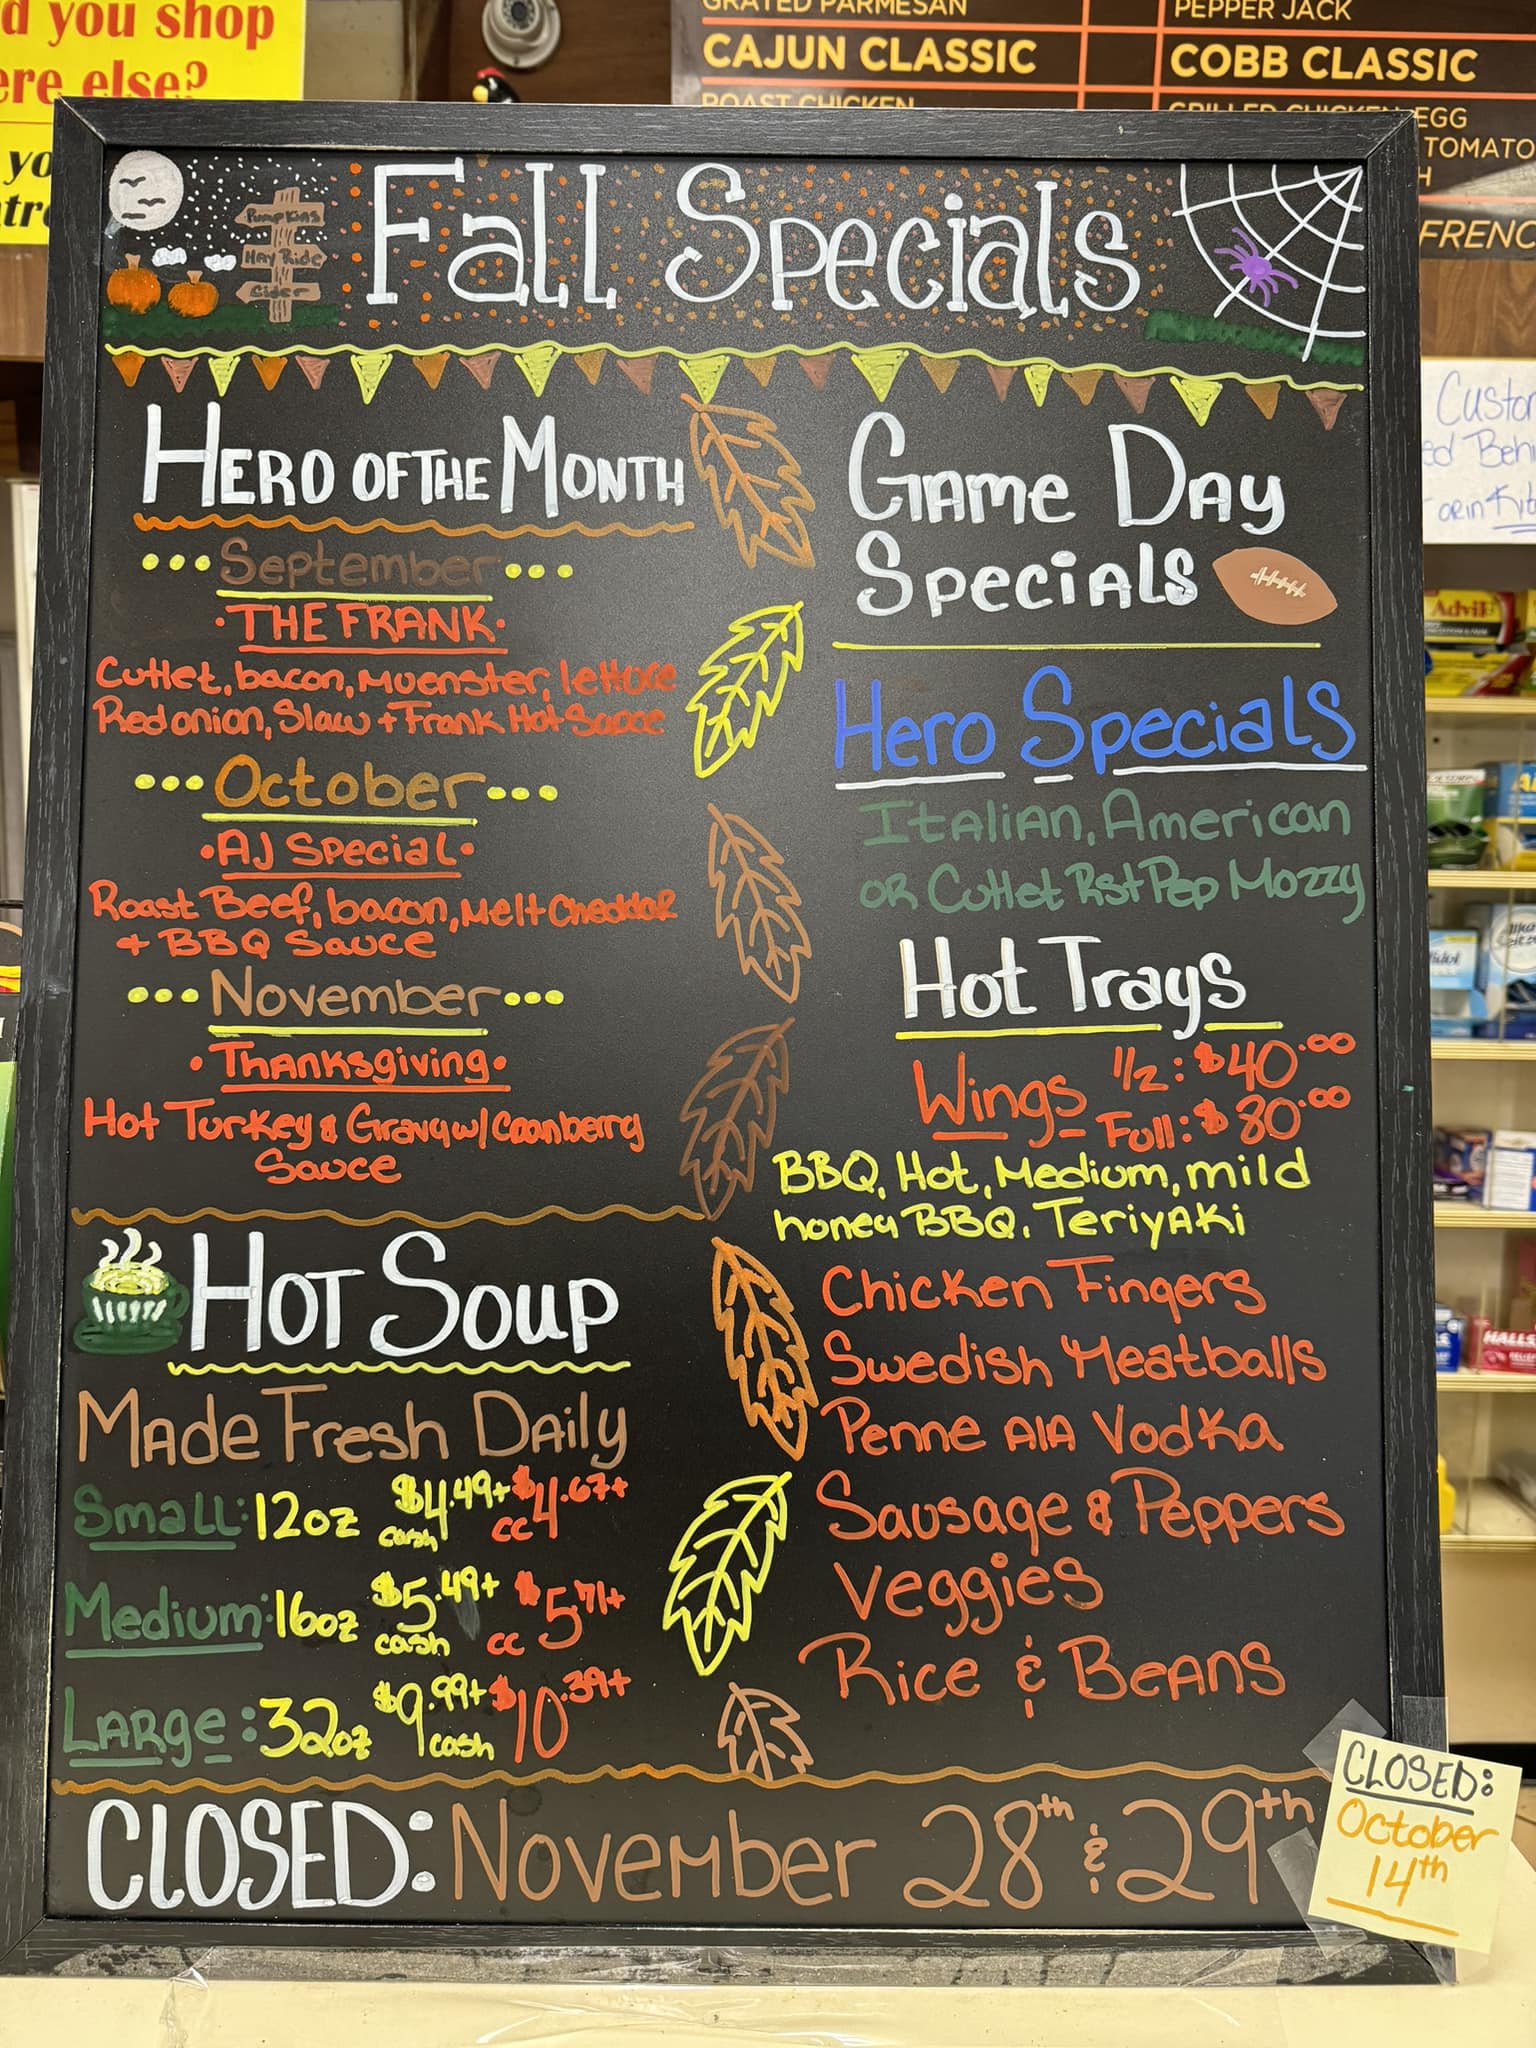 d you shop
ere else?
GRATED PARMESAN
PEPPER JACK
CAJUN CLASSIC
COBB CLASSIC
ROAST CHICKEN
GRILLED CHICKEN, EGG
TOMATO
FRENC
Pumpkins
Hay Ride
Cider
Fall Specials
HERO OF THE MONTH
September
• THE FRANK •
Cutlet, bacon, muenster, lettuce
Red onion, Slaw + Frank Hot Sauce
October
• AJ Special •
Roast Beef, bacon, Melt Cheddar
+ BBQ Sauce
November
• Thanksgiving •
Hot Turkey & Gravy w/ Cranberry
Sauce
HOT SOUP
Made Fresh Daily
Small: 12oz $4.49+ cash cc $4.67+
Medium: 16oz $5.49+ cash cc $5.71+
Large: 32oz $9.99+ cash $10.39+
Game Day
Specials
Hero Specials
Italian, American
OR Cutlet Rst Pep Mozzy
Hot Trays
Wings 1/2: $40.00
Full: $80.00
BBQ, Hot, Medium, mild
honey BBQ, Teriyaki
Chicken Fingers
Swedish Meatballs
Penne AlA Vodka
Sausage & Peppers
Veggies
Rice & Beans
CLOSED: November 28th & 29th
CLOSED:
October
14th
Custo
ed Behi
Advil
HALLS